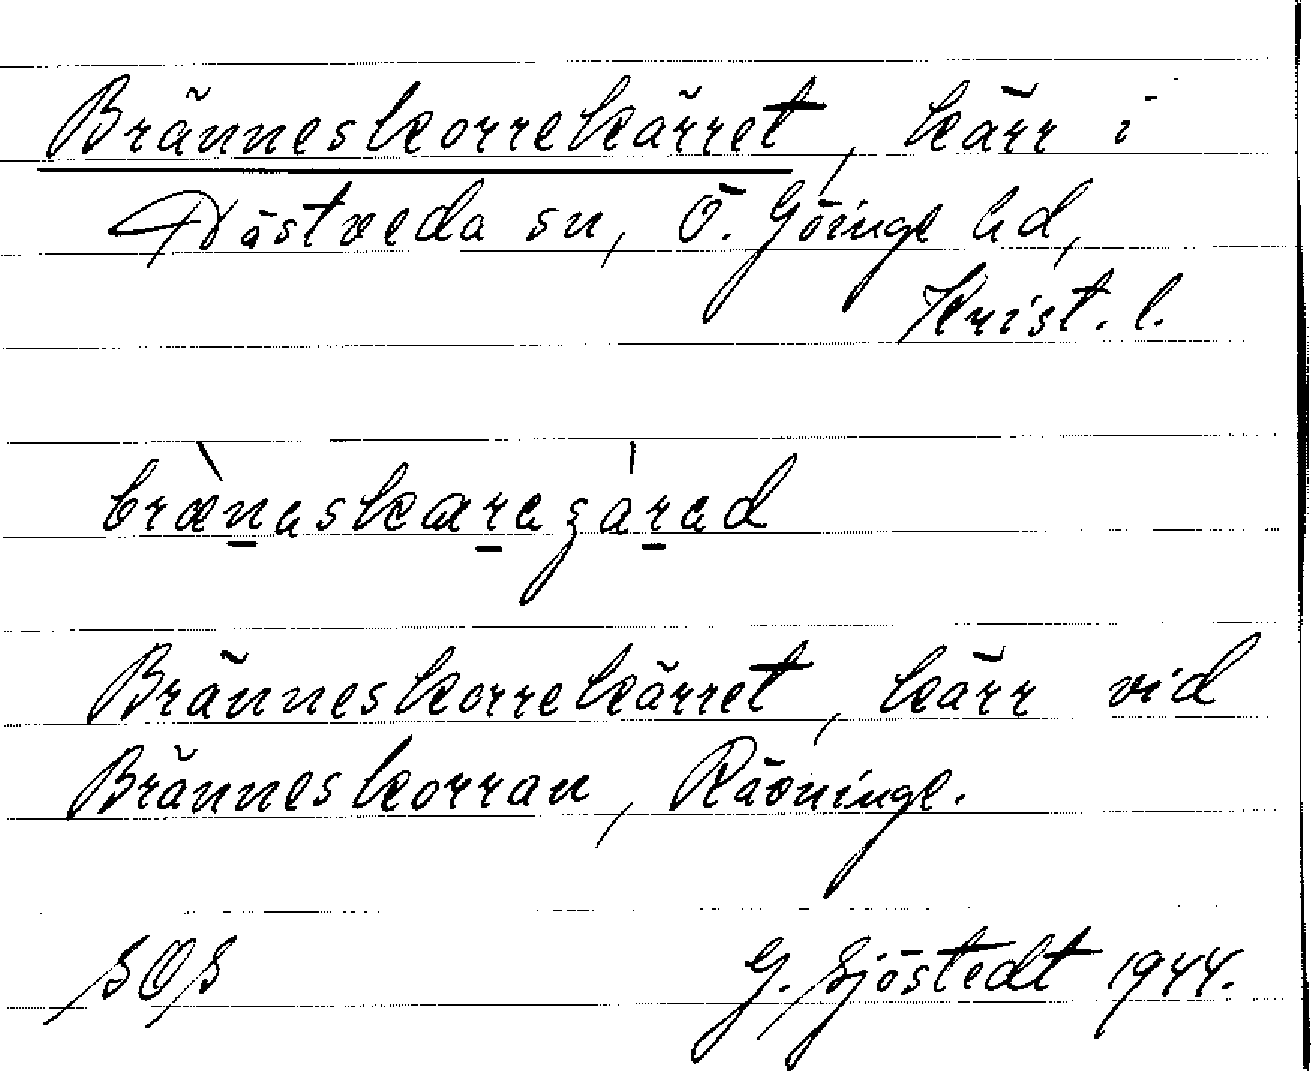 Bränneskorrekärret, kärr i
Östveda sn, Ö. Göinge hd,
Krist. l.
brænaskaraʒárad
Bränneskorrekärret, kärr vid
Bränneskorran, Rävninge.
SOS
G. Sjöstedt 1944.